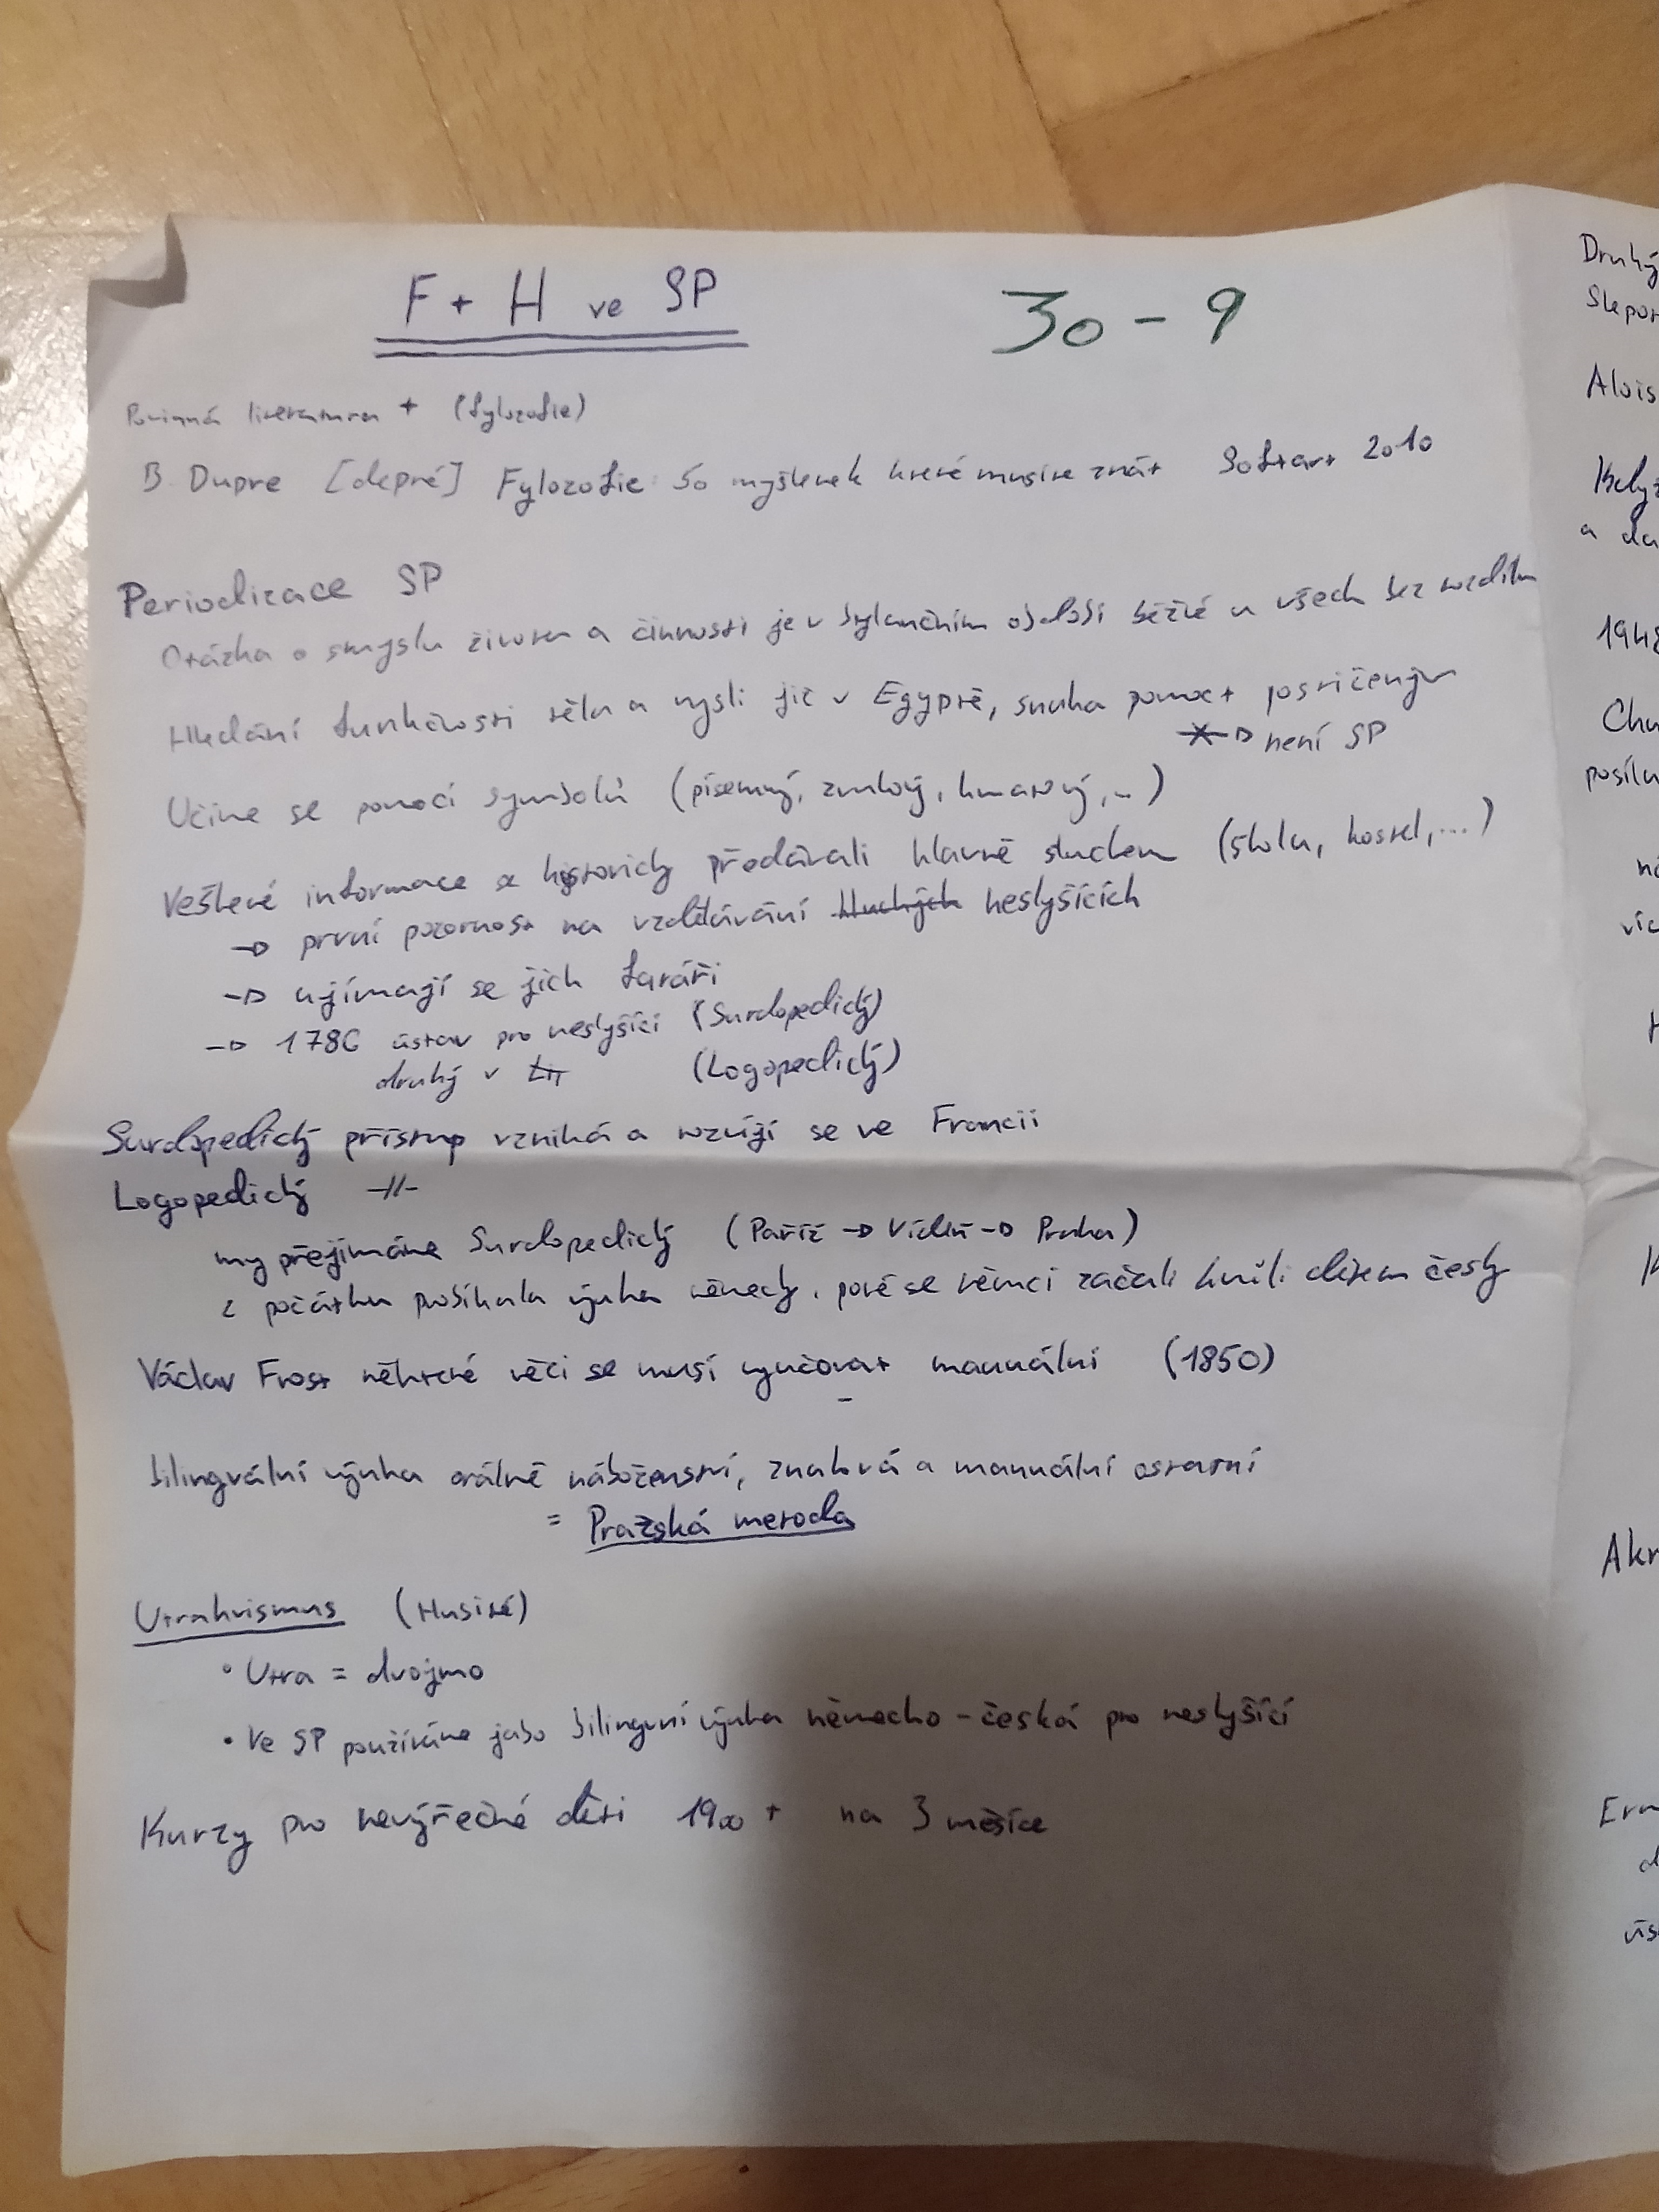 F + H ve SP
30 - 9
Povinná literatura + (fylozofie)
B. Dupre [depré] Fylozofie: 50 myšlenek které musíte znát Softart 2010
Periodizace SP
Otázka o smyslu života a činnosti je v bylančním období běžné u všech bez rozdílu
Hledání funkčnosti těla a mysli již v Egyptě, snaha pomoct postiženým
není SP
Učíme se pomocí symbolů (písemný, zvukový, hmatový,..)
Veškeré informace se historicky předávali hlavně sluchem (škola, kostel,...)
→ první pozornost na vzdělávání hluchých neslyšících
→ ujímají se jich faráři
→ 1786 ústav pro neslyšící (Surdopedický)
druhý v (Logopedický)
Surdopedický přístup vzniká a rozvíjí se ve Francii
Logopedický -//-
my přejímáme Surdopedický (Paříž → Vídeň → Praha)
z počátku probíhala výuka německy, poté se němci začali kvůli dětem česky
Václav Frost některé věci se musí vyučovat manuální (1850)
bilingvální výuka orálně náboženství, znaková a manuální ostatní
= Pražská metoda
Utrakvismus (Husité)
• Utra = dvojmo
• Ve SP používáme jako bilingvní výuka německo - česká pro neslyšící
Kurzy pro nevýřečné děti 1900 + na 3 měsíce
Druhý
Alois
a
1948
Chu
posílu
Akr
Ern